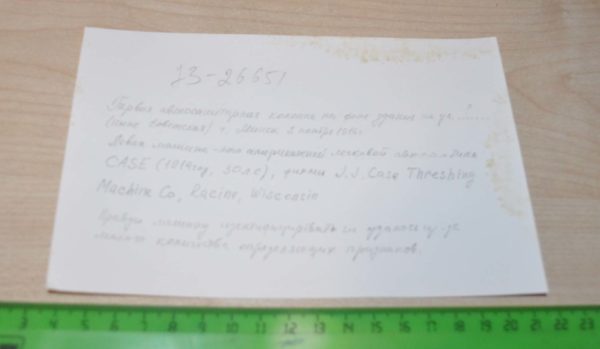 13-26651
Первая автосанитарная колонна на фоне здания на ул. ...?...
(ныне Советская) г. Минск 2 ноября
Левая машина - это американский легковой
CASE (1914год, 30лс), фирмы J.J. Case Threshing
Machine Co, Racine, Wisconsin
Правую машину идентифицировать не удалось из-за
малого количества определяющих признаков.
3 4 5 6 7 8 9 10 11 12 13 14 15 16 17 18 19 20 21 22 23